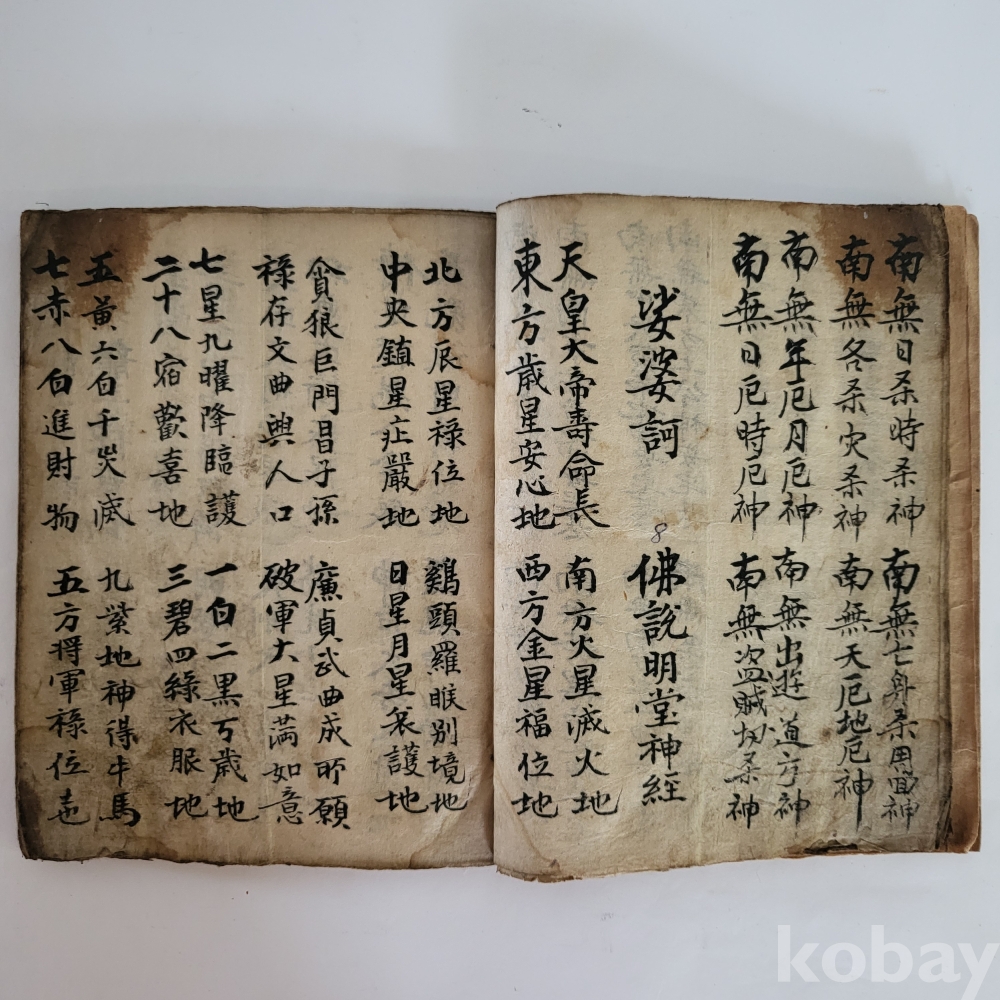 南無日杀時杀神 南無亡身杀用
南無各杀灾杀神 南無天厄地厄神
南無年厄月厄神 南無出遊道方神
南無日厄時厄神 南無盜賊刼杀神
娑婆訶 佛說明堂神經
8
天皇大帝壽命長 南方火星滅火地
東方歲星安心地 西方金星福位地
北方辰星禄位地 鷄頭羅睺别境地
中央鎮星庄嚴地 日星月星衮護地
貪狼巨門昌子孫 廉貞武曲成所願
禄存文曲興人口 破軍大星満如意
七星九曜降臨護 一白二黒万歲地
二十八宿歡喜地 三碧四緑衣服地
五黃六白千災滅 九紫地神得牛馬
七赤八白進財物 五方将軍禄位
kobay